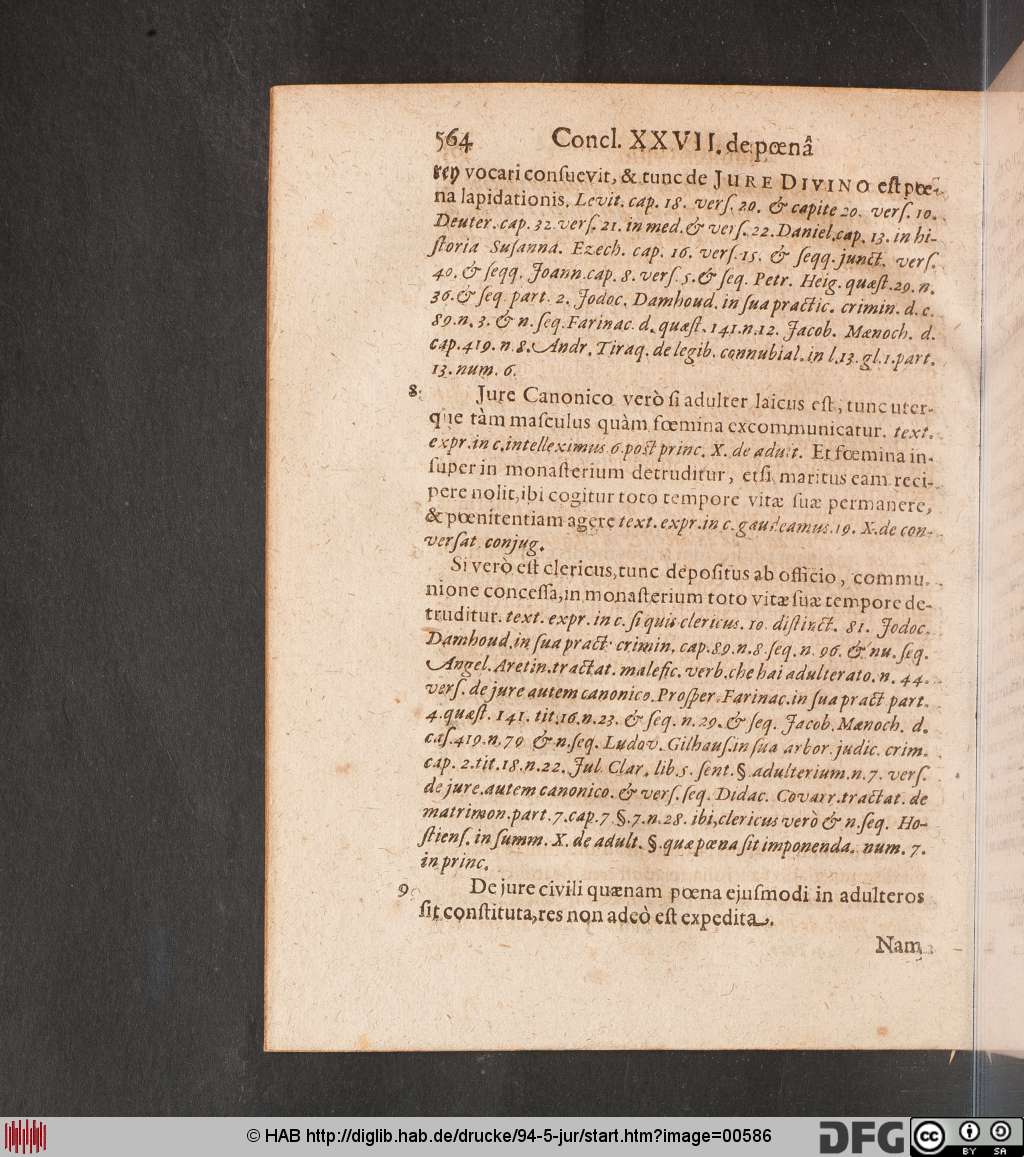 564 Concl. XXVII. de pœnâ
rey vocari conſuevit, & tunc de JURE DIVINO eſt pœ-
na lapidationis. Levit. cap. 18. verſ. 20. & capite 20. verſ. 10.
Deuter. cap. 32 verſ. 21. in med. & verſ. 22. Daniel. cap. 13. in hi-
ſtoria Suſanna. Ezech. cap. 16. verſ. 15. & ſeqq. junct. verſ.
40. & ſeqq. Joann. cap. 8. verſ. 5. & ſeq. Petr. Heig. quæſt. 29. n.
36. & ſeq. part. 2. Jodoc. Damhoud. in ſua practic. crimin. d. c.
89. n. 3. & n. ſeq. Farinac. d. quæſt. 141. n. 12. Jacob. Mænoch. d.
cap. 419. n. 8. Andr. Tiraq. de legib. connubial. in l. 13. gl. 1. part.
13. num. 6.
8. Jure Canonico verò ſi adulter laicus eſt, tunc uter-
que tàm maſculus quàm fœmina excommunicatur. text.
expr. in c. intelleximus 6. poſt princ. X. de adult. Et fœmina in-
ſuper in monaſterium detruditur, etſi maritus eam reci-
pere nolit, ibi cogitur toto tempore vitæ ſuæ permanere,
& pœnitentiam agere text. expr. in c. gaudeamus. 19. X. de con-
verſat. conjug.
Si verò eſt clericus, tunc depoſitus ab officio, commu-
nione conceſſa, in monaſterium toto vitæ ſuæ tempore de-
truditur. text. expr. in c. ſi quis clericus. 10. diſtinct. 81. Jodoc.
Damhoud. in ſua pract. crimin. cap. 89. n. 8. ſeq. n. 96. & nu. ſeq.
Angel. Aretin. tractat. malefic. verb. che hai adulterato. n. 44.
verſ. de jure autem canonico. Proſper. Farinac. in ſua pract part.
4. quæſt. 141. tit. 16. n. 23. & ſeq. n. 29. & ſeq. Jacob. Mænoch. d.
caſ. 419. n. 79 & n. ſeq. Ludov. Gilhauſ. in ſua arbor. judic. crim.
cap. 2. tit. 18. n. 22. Jul. Clar. lib. 5. ſent. §. adulterium. n. 7. verſ.
de jure. autem canonico. & verſ. ſeq. Didac. Covarr. tractat. de
matrimon. part. 7. cap. 7. §. 7. n. 28. ibi, clericus verò & n. ſeq. Ho-
ſtienſ. in ſumm. X. de adult. §. quæ pœna ſit imponenda. num. 7.
in princ.
9. De jure civili quænam pœna ejuſmodi in adulteros
ſit conſtituta, res non adeò eſt expedita.
Nam
© HAB http://diglib.hab.de/drucke/94-5-jur/start.htm?image=00586
DFG
cc BY SA